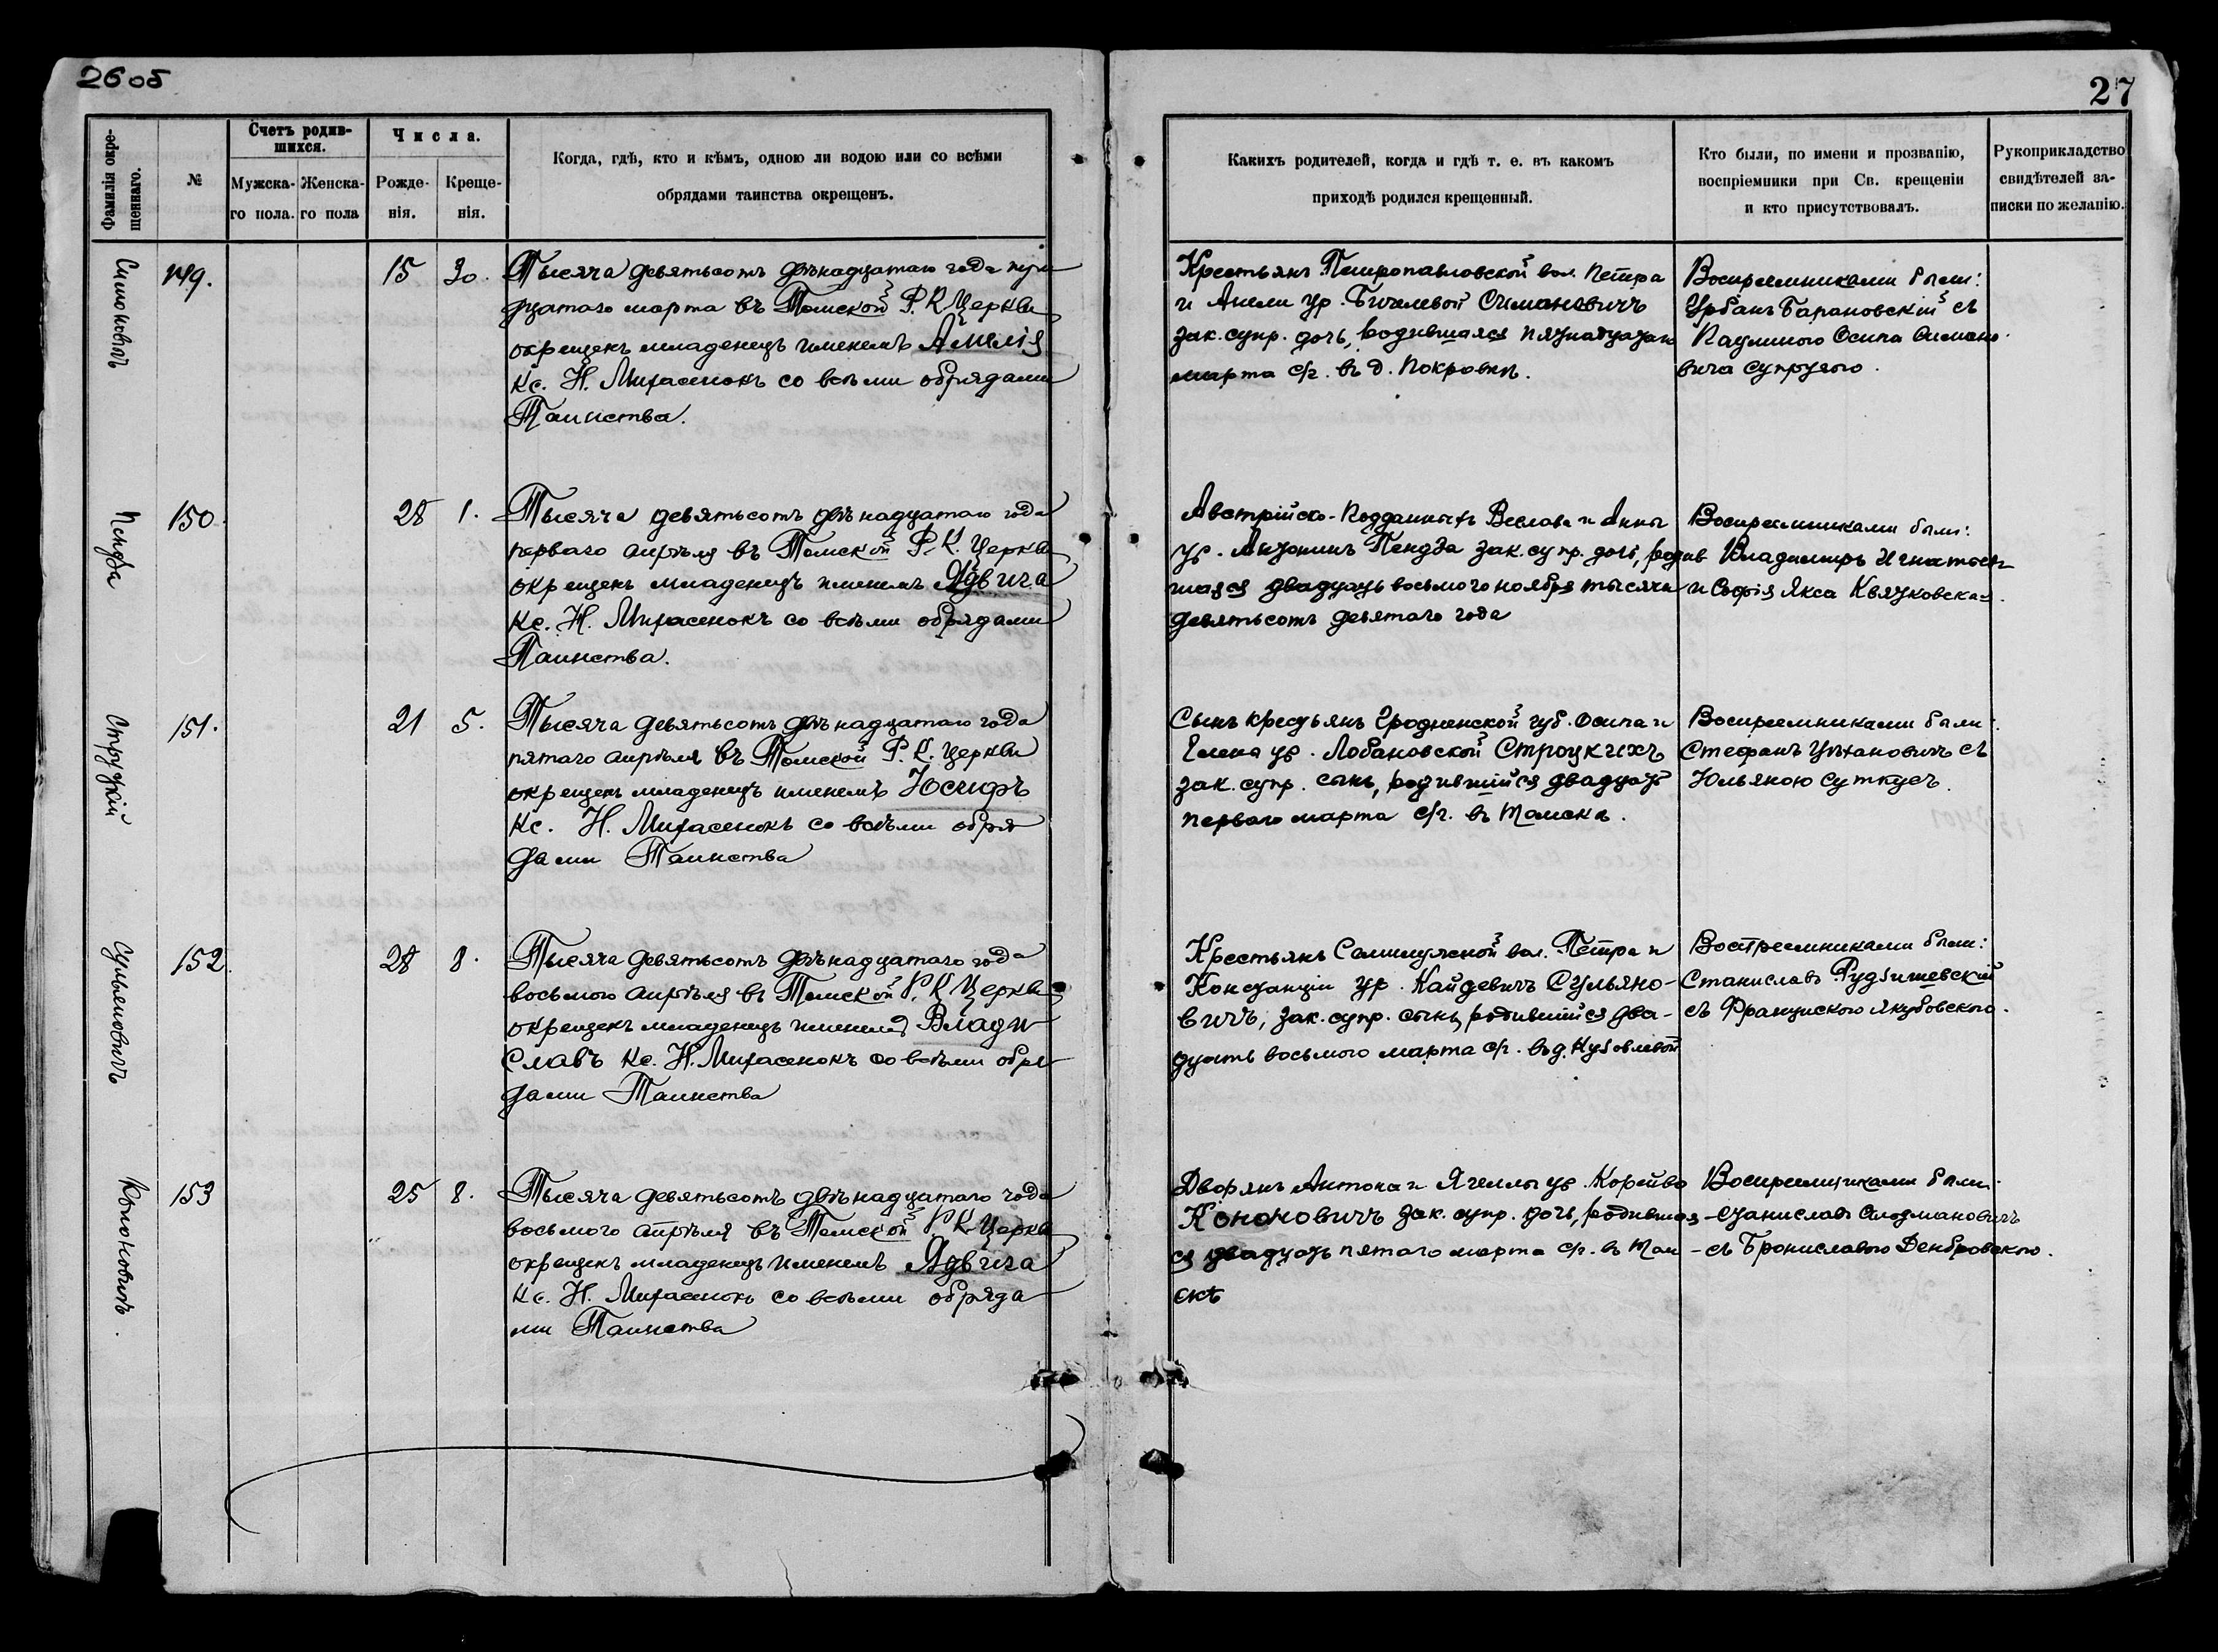 26 об
27
Фамилія окре-
щеннаго.
№
Счетъ родив-
шихся.
Мужска-
го пола.
Женска-
го пола
Числа.
Рожде-
нія.
Креще-
нія.
Когда, гдѣ, кто и кѣмъ, одною ли водою или со всѣми
обрядами таинства окрещенъ.
Какихъ родителей, когда и гдѣ т. е. въ какомъ
приходѣ родился крещенный.
Кто были, по имени и прозванію,
воспріемники при Св. крещеніи
и кто присутствовалъ.
Рукоприкладство
свидѣтелей за-
писки по желанію.
Симоновичъ
149.
15 30.
Тысяча девятьсотъ двѣнадцатаго года три
дцатаго марта въ Томской Р. К. Церкви
окрещенъ младенецъ именемъ
Кс. Н. Михасенокъ со всѣми обрядами
Таинства.
Крестьянъ Петропавловской вол. Петра
и Анели ур. Бичелевой Симановичъ
зак. супр. дочь, родившаяся пятнадцатаго
марта с/г. въ д. Покровкѣ.
Воспреемниками были:
Урбанъ Барановскій съ
Паулиною Осипа Симано-
вича супругою.
Пендза
150.
28 1.
Тысяча девятьсотъ двѣнадцатаго года
перваго апрѣля въ Томской Р. К. Церкви
окрещенъ младенецъ именемъ Ядвига
Кс. Н. Михасенокъ со всѣми обрядами
Таинства.
Австрійско-подданныхъ Веслава и Анны
ур. Антонинъ Пендза зак. супр. дочь, родив
шаяся двадцать восьмого ноября тысяча
девятьсотъ девятаго года
Воспреемниками были:
Владимиръ
и Софія Якса Квятковская.
Струцкій
151.
21 5.
Тысяча девятьсотъ двѣнадцатаго года
пятаго апрѣля въ Томской Р. К. Церкви
окрещенъ младенецъ именемъ Юсифъ
Кс. Н. Михасенокъ со всѣми обря
дами Таинства
Сынъ крестьянъ Гродненской губ. Осипа и
Елена ур. Лобановской Строцкихъ
зак. супр. сынъ, родившійся двадцать
перваго марта с/г. въ Томскѣ.
Воспреемниками были:
Стефанъ съ
Юльяною Суткусъ.
Сульяновичъ
152.
28 8.
Тысяча девятьсотъ двѣнадцатаго года
восьмого апрѣля въ Томской Р. К. Церкви
окрещенъ младенецъ именемъ Влади
славъ Кс. Н. Михасенокъ со всѣми обря
дами Таинства
Крестьянъ Семилужской вол. Петра и
Констанціи ур. Кайдевичъ Сульяно-
вичъ, зак. супр. сынъ, родившійся два-
дцать восьмого марта с/г. въ д.
Воспреемниками были:
Станиславъ Рудзишевскій
съ Францискою Якубовскою.
Кононовичъ.
153
25 8.
Тысяча девятьсотъ двѣнадцатаго года
восьмого апрѣля въ Томской Р. К. Церкви
окрещенъ младенецъ именемъ Ядвига
Кс. Н. Михасенокъ со всѣми обряда
ми Таинства
Дворянъ Антона и Ягеллы ур. Корейво
Кононовичъ зак. супр. дочь, родившая-
ся двадцать пятаго марта с/г. въ Том-
скѣ
Воспреемниками были:
Станиславъ
съ Брониславою Дембровскою.